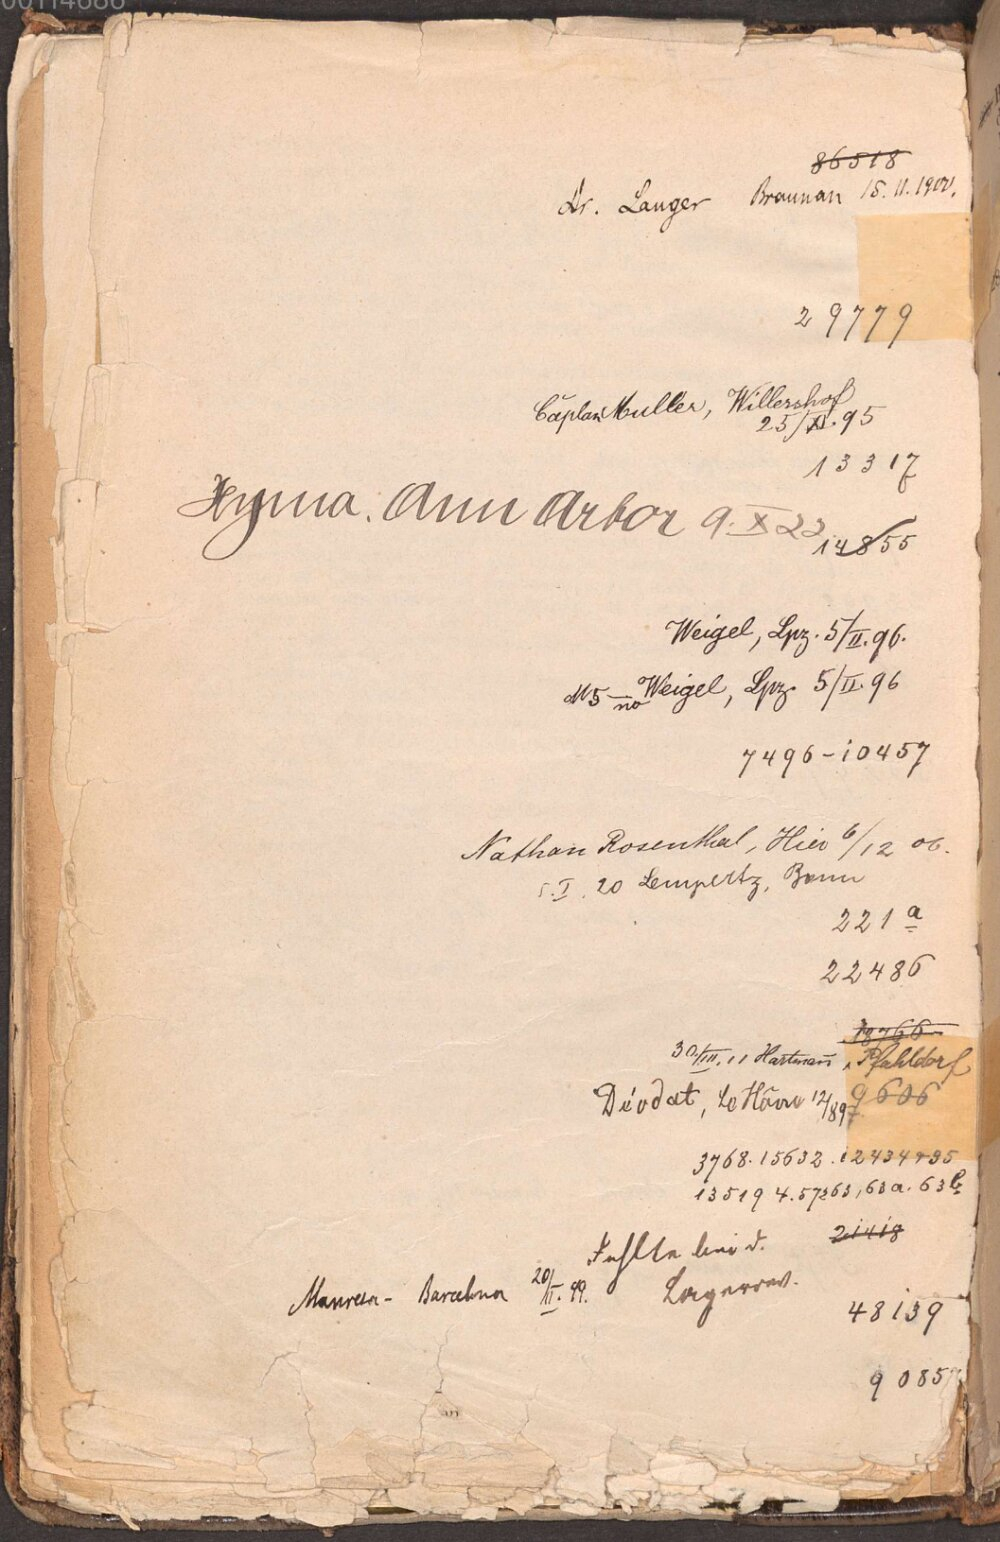 00114686
86518
Dr. Langer Braunau 15.11.1900.
29779
Caplan Muller, Willershof
25/XI.95
13317
Hyma. Ann Arbor 9.X22
14855
Weigel, Lpz. 5/II.96.
no Weigel, Lpz. 5/II.96
7496-10457
Nathan Rosenthal, Hier 6/12 06.
20 Lempertz, Bonn
221a
22486
18766
30./III.11 Hartmann, Pfahldorf
Déodat, Le Havre 12/89 9606
3768.15632.12434+35
13519 4.57263, 63a. 63b
Fehlte bei d. 21418
Manresa - Barcelona 20/II.99. Lagerrev.
48139
9085